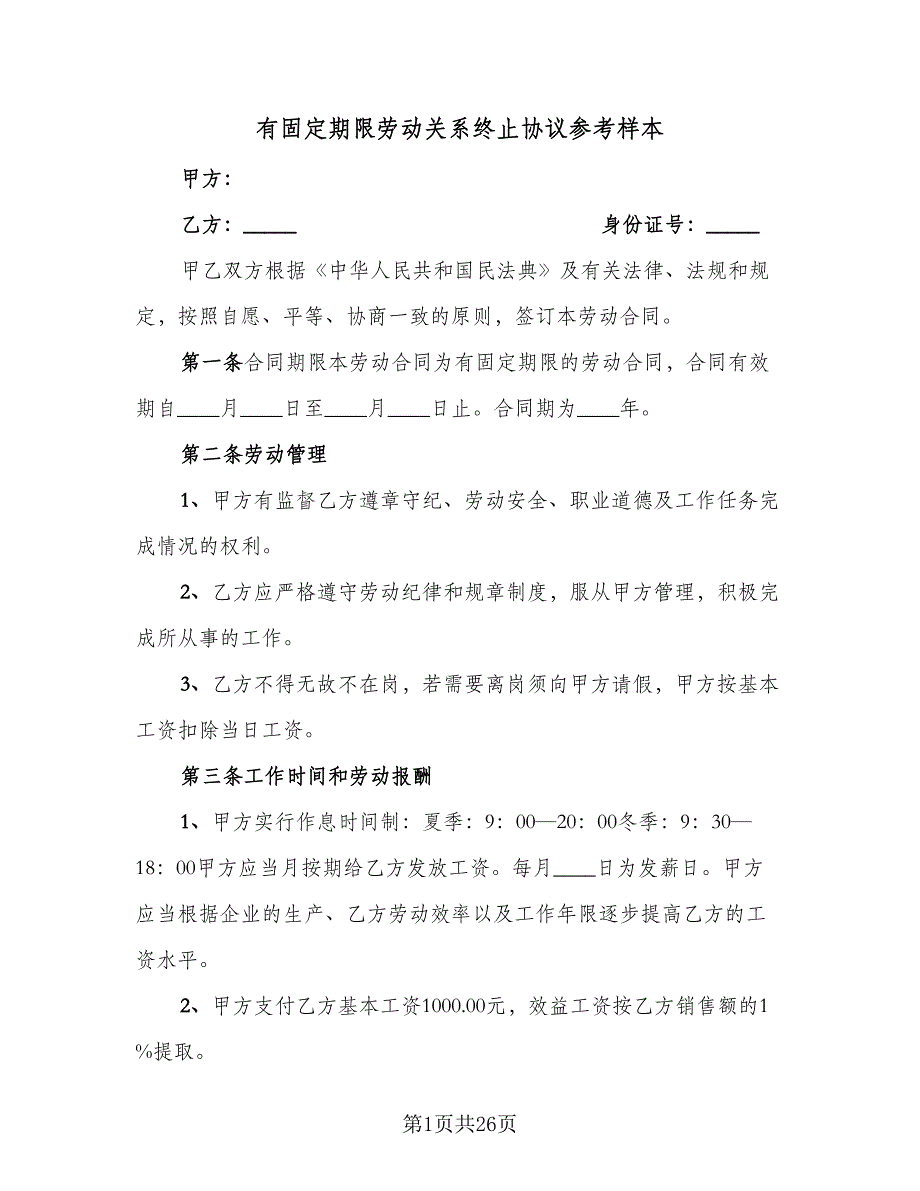 有固定期限劳动关系终止协议参考样本
甲方：
乙方：_____ 身份证号：_____
甲乙双方根据《中华人民共和国民法典》及有关法律、法规和规
定，按照自愿、平等、协商一致的原则，签订本劳动合同。
第一条合同期限本劳动合同为有固定期限的劳动合同，合同有效
期自____月____日至____月____日止。合同期为____年。
第二条劳动管理
1、甲方有监督乙方遵章守纪、劳动安全、职业道德及工作任务完
成情况的权利。
2、乙方应严格遵守劳动纪律和规章制度，服从甲方管理，积极完
成所从事的工作。
3、乙方不得无故不在岗，若需要离岗须向甲方请假，甲方按基本
工资扣除当日工资。
第三条工作时间和劳动报酬
1、甲方实行作息时间制：夏季：9：00—20：00冬季：9：30—
18：00甲方应当月按期给乙方发放工资。每月____日为发薪日。甲方
应当根据企业的生产、乙方劳动效率以及工作年限逐步提高乙方的工
资水平。
2、甲方支付乙方基本工资1000.00元，效益工资按乙方销售额的1
%提取。
第1页共26页